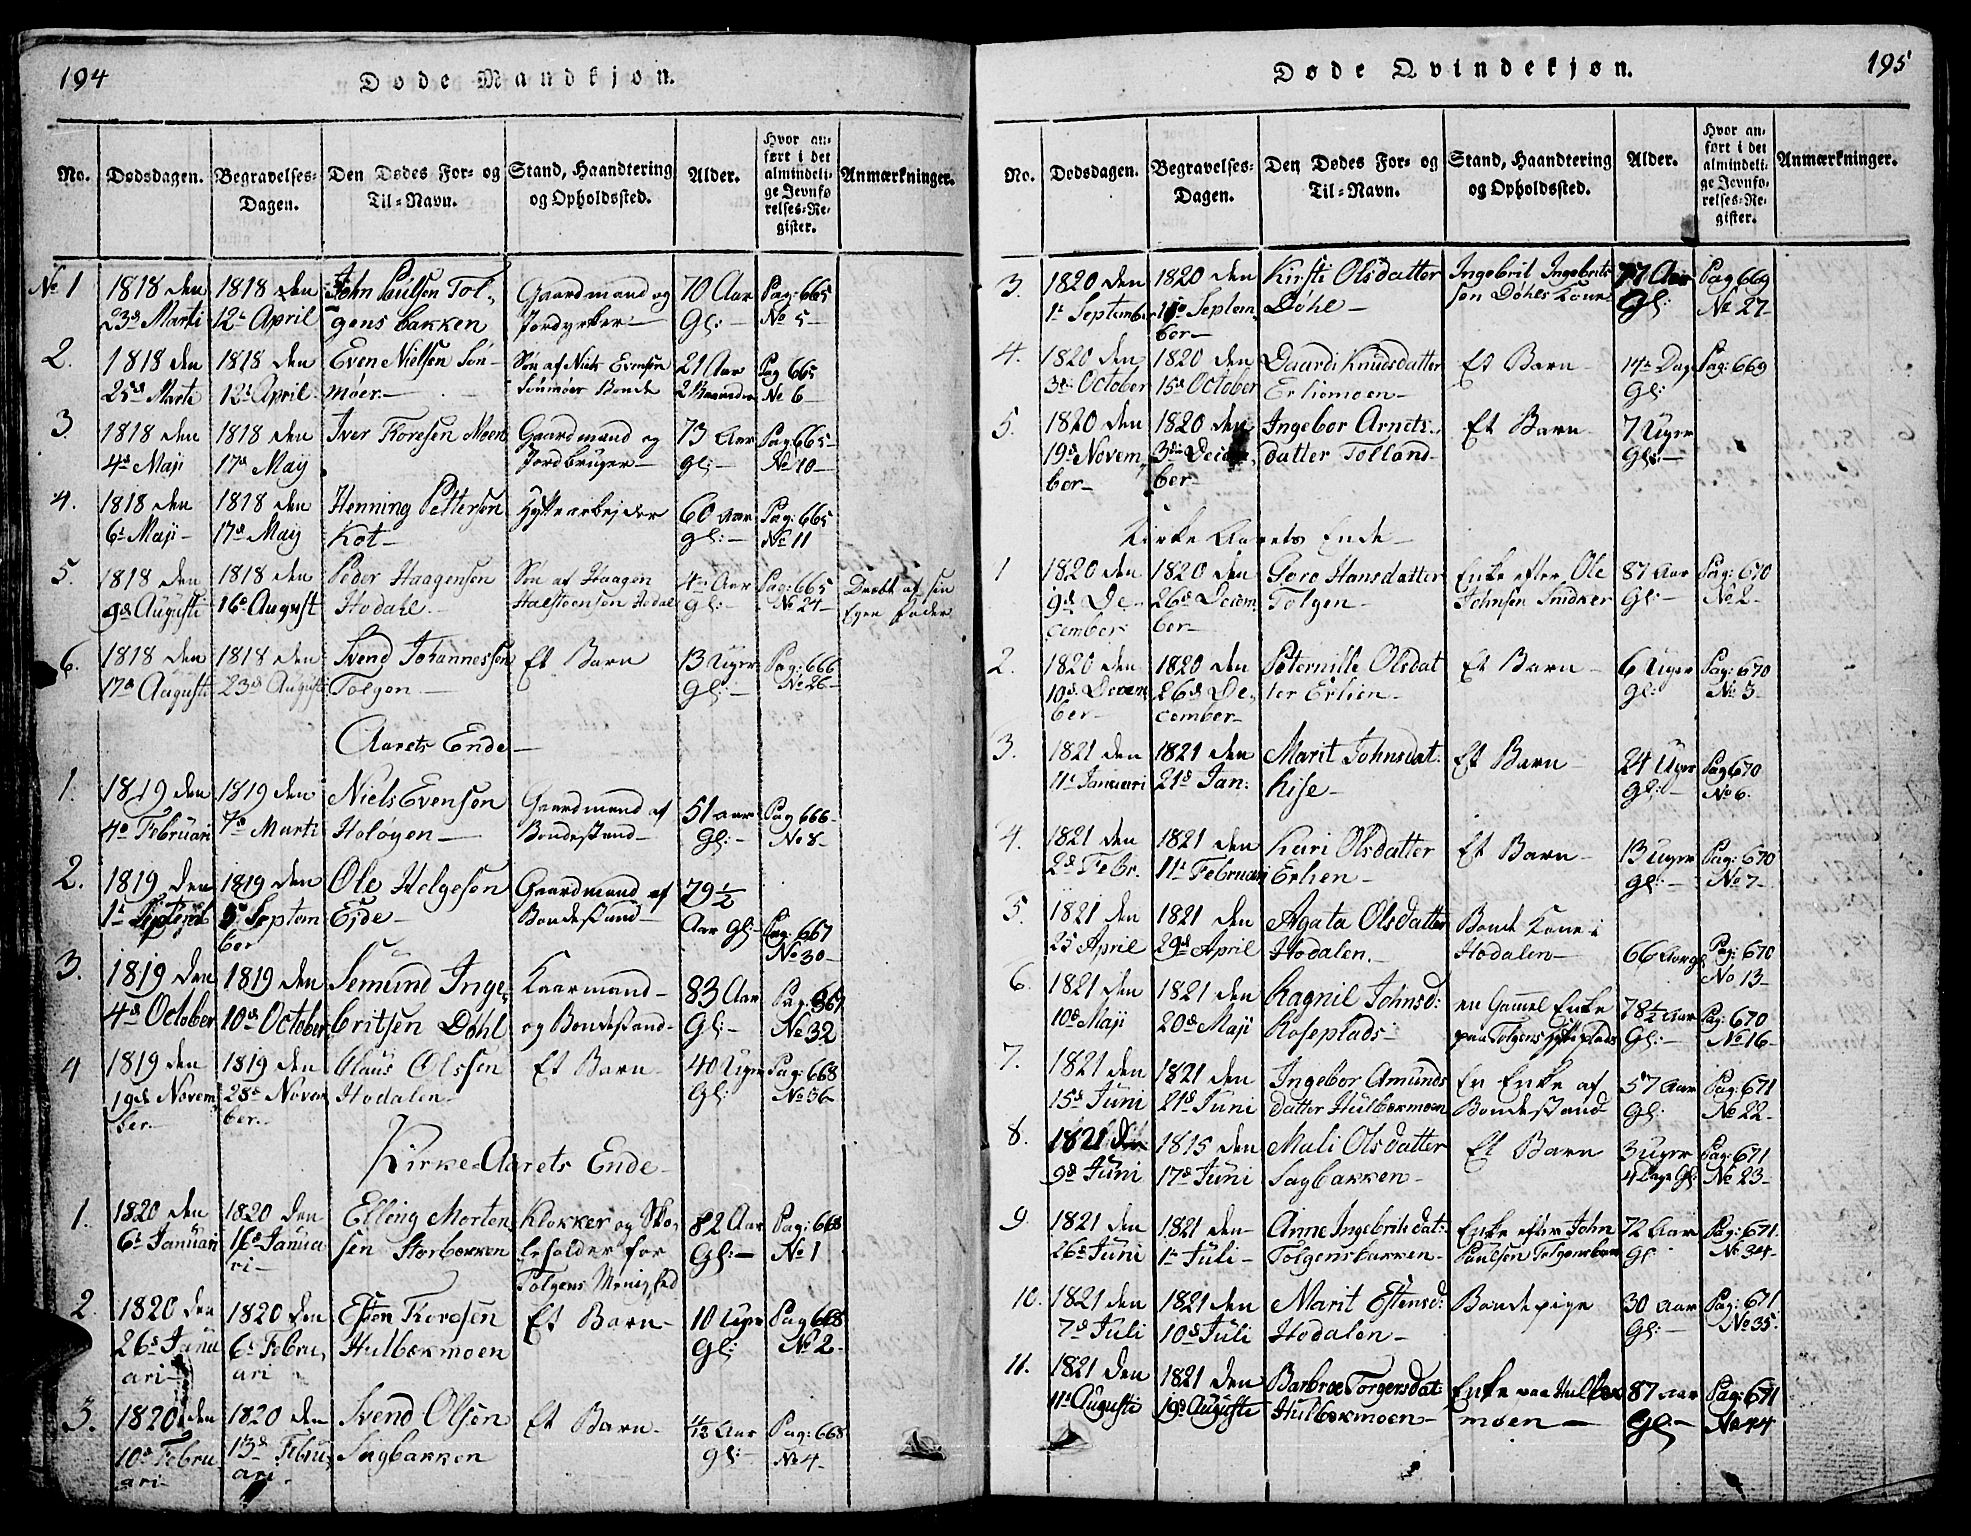 194
Døde Mandkjøn.
No.
Dødsdagen.
Begravelses-
Dagen.
Den Dødes For- og
Til-Navn.
Stand, Haandtering
og Opholdssted.
Alder.
Hvor an-
ført i det
almindeli-
ge Jevnfø-
relses-Re-
gister.
Anmærkninger.
No 1
1818 den
23d Marti
1818 den
12t April
John Poulsen Tol-
gens bakken
Gaardmand og
Jordyrker
70 Aar
Gl:
Pag: 665
No 5
2.
1818 den
25d Marti
1818 den
12t April
Even Nielsen Sön-
møer
Søn af Niels Evensøn
Sönmöer Bonde
21 Aar
2 Maaneder
Pag 665
No 6
3.
1818 den
4d Maji
1818 den
17d May
Iver Thoresen Moen
Gaardmand og
Jordbruger
73 Aar
gl:
Pag: 665
No 10
4.
1818 den
6t Maji
1818 den
17d May
Henning Pettersøn
Kot
Hytte arbejder
60 Aar
gl:
Pag: 665
No 11
5.
1818 den
9d Augusti
1818 den
16d August
Peder Haagensen
Hodahl
Søn af Haagen
Halsteensen Hodal
4 Aar
gl:
Pag: 665
No 24
Dræbt af sin
Egen fader
6.
1818 den
17d Augusti
1818 den
23d Augusti
Svend Johannessen
Tolgen
Et Barn
13 Uger
Gl:
Pag: 666
No 26
Aarets Ende
1.
1819 den
4d Februari
1819 den
7d Marti
Niels Evensøn
Holøyen
Gaardmand af
Bondestand
51 aar
Gl:
Pag 666
No 8
2.
1819 den
1t Septemb
1819 den
5t Septem
ber
Ole Helgesøn
Eide
Gaardmand af
Bondestand
79 1/2
Aar Gl:
Pag: 667
No 30
3.
1819 den
4d October
1819 den
10d October
Semund Inge
britsen Döhl
Kaarmand
og Bondestand
83 Aar
Gl:
Pag: 667
No 32
4
1819 den
19d Novem
ber
1819 den
28d Novem
ber
Claus Olssen
Hodalen
Et Barn
40 Uger
Gl:
Pag: 668
No 36
Kirke-Aarets Ende
1.
1820 den
6t Januari
1820 den
16d Janua
ri
Elling Morten
sen Storbækken
Klokker og Sko-
leholder for
Tolgens Menighed
82 Aar
Gl:
Pag: 668
No 1
2.
1820 den
26d Janu
ari
1820 den
6t Febru
ari
Esten Thoresen
Hulbækmoen
Et Barn
10 Uger
Gl:
Pag 668
No 2
3.
1820 den
10d Febru
ari
1820 den
13d Febru
ari
Svend Olsen
Sagbakken
Et Barn
Aar
gl:
Pag: 668
No 4
195
Døde Qvindekjøn.
No.
Dødsdagen.
Begravelses-
Dagen.
Den Dødes For- og
Til-Navn.
Stand, Haandtering
og Opholdssted.
Alder.
Hvor an-
ført i det
almindeli-
ge Jevnfø-
relses-Re-
gister.
Anmærkninger.
3.
1820 den
1t September
1820 den
Septem
ber
Kirsti Olsdatter
Döhl
Ingebrit Ingebrits
sen Døhls Kone
77 Aar
Gl:
Pag 669
No 27
4.
1820 den
3d October
1820 den
15d October
Daardi Knudsdatter
Erliemoen
Et Barn
14 Dag
Gl:
Pag: 669
5.
1820 den
19d Novem
ber
1820 den
3die Decem
ber
Ingebor Arnets-
datter Tolland
Et Barn
7 Uger
Gl:
Kirke Aarets Ende
1
1820 den
9d De
cember
1820 den
26d Decem
ber
Goro Hansdatter
Tolgen
Enke efter Ole
Johnsen Snidker
87 Aar
Gl:
Pag: 670
No 2
2.
1820 den
10d Decem
ber
1820 den
26d De
cember
Peternille Olsdat
ter Erlien
Et Barn
6 Uger
gl:
Pag: 670
No 3
3.
1821 den
11t Januari
1821 den
21d Jan:
Marit Johnsdat:
Kise
Et Barn
24 Uger
Gl:
Pag 670
No 6
4.
1821 den
2d Febr.
1821 den
11t Februari
Kari Olsdatter
Erlien
Et Barn
13 Uger
gl:
Pag: 670
No 7
5.
1821 den
25 April
1821 den
29d April
Agata Olsdatter
Hodalen
Bonde Kone i
Hodalen
66 Aar gl
Pag: 670
No 13
6.
1821 den
10d Maji
1821 den
20d Maji
Ragnil Johnsd:
Roseplads
en Gammel Enke
paa Tolgens Hytteplads
78 1/2 Aar
Gl:
Pag: 670
No 16
7.
1821 den
15d Juni
1821 den
21d Juni
Ingebor Amunds
datter Hulbækmoen
En Enke af
Bondestand
57 Aar
Gl:
Pag: 671
No 22
8.
1821 den
9d Juni
1815 den
17d Juni
Mali Olsdatter
Sagbakken
Et Barn
3 Uger
4 Dage Gl:
Pag: 671
No 23
9.
1821 den
26d Juni
1821 den
1t Juli
Anne Ingebritsdat:
Tolgensbakken
Enke efter John
Paulsen Tolgensbak
72 Aar
Gl
Pag: 671
No 34
10.
1821 den
7d Juli
1821 den
10d Juli
Marit Estensd:
Hodalen
Bonde pige
30 Aar
Gl:
Pag: 671
No 35
11.
1821 den
11t Augusti
1821 den
19d Augusti
Barbroe Torgersdat
Hulbækmoen
Enke paa Hulbæk
moen
87 aar
Gl:
Pag: 671
No 44